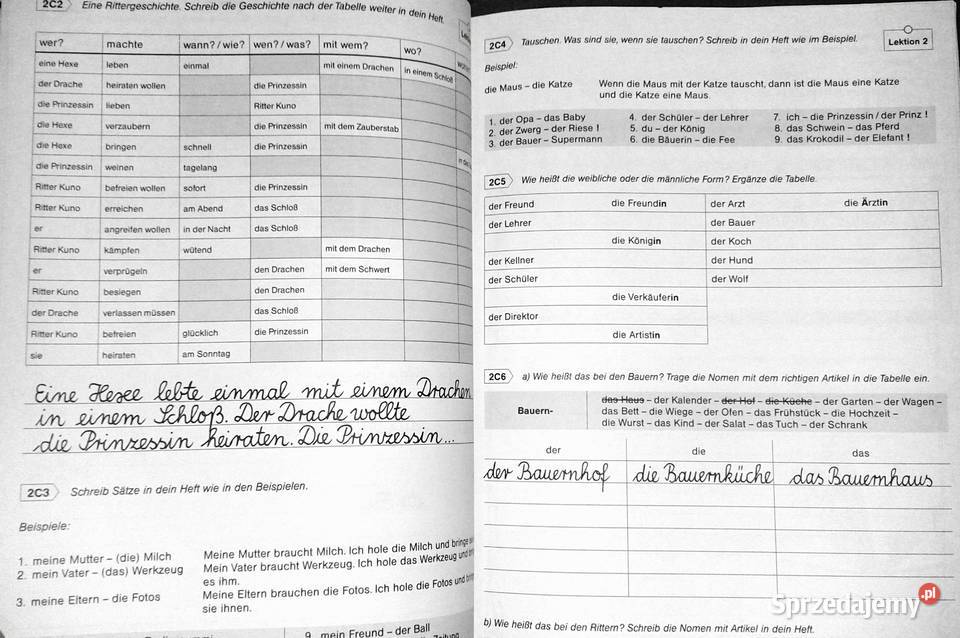 2C2 Eine Rittergeschichte. Schreib die Geschichte nach der Tabelle weiter in dein Heft.
wer? machte wann? / wie? wen? / was? mit wem? wo?
eine Hexe leben einmal mit einem Drachen in einem Schloß
der Drache heiraten wollen die Prinzessin
die Prinzessin lieben Ritter Kuno
die Hexe verzaubern die Prinzessin mit dem Zauberstab
die Hexe bringen schnell die Prinzessin
die Prinzessin weinen tagelang
Ritter Kuno befreien wollen sofort die Prinzessin
Ritter Kuno erreichen am Abend das Schloß
er angreifen wollen in der Nacht das Schloß
Ritter Kuno kämpfen wütend mit dem Drachen
er verprügeln den Drachen mit dem Schwert
Ritter Kuno besiegen den Drachen
der Drache verlassen müssen das Schloß
Ritter Kuno befreien glücklich die Prinzessin
sie heiraten am Sonntag
Eine Hexe lebte einmal mit einem Drachen
in einem Schloß. Der Drache wollte
die Prinzessin heiraten. Die Prinzessin...
2C3 Schreib Sätze in dein Heft wie in den Beispielen.
Beispiele:
1. meine Mutter – (die) Milch Meine Mutter braucht Milch. Ich hole die Milch und bringe
2. mein Vater – (das) Werkzeug Mein Vater braucht Werkzeug. Ich hole das Werkzeug und
es ihm.
3. meine Eltern – die Fotos Meine Eltern brauchen die Fotos. Ich hole die Fotos und
sie ihnen.
9. mein Freund – der Ball
Lektion 2
2C4 Tauschen. Was sind sie, wenn sie tauschen? Schreib in dein Heft wie im Beispiel.
Beispiel:
die Maus – die Katze Wenn die Maus mit der Katze tauscht, dann ist die Maus eine Katze
und die Katze eine Maus.
1. der Opa – das Baby 4. der Schüler – der Lehrer 7. ich – die Prinzessin / der Prinz !
2. der Zwerg – der Riese ! 5. du – der König 8. das Schwein – das Pferd
3. der Bauer – Supermann 6. die Bäuerin – die Fee 9. das Krokodil – der Elefant !
2C5 Wie heißt die weibliche oder die männliche Form? Ergänze die Tabelle.
der Freund die Freundin der Arzt die Ärztin
der Lehrer der Bauer
die Königin der Koch
der Kellner der Hund
der Schüler der Wolf
die Verkäuferin
der Direktor
die Artistin
2C6 a) Wie heißt das bei den Bauern? Trage die Nomen mit dem richtigen Artikel in die Tabelle ein.
Bauern- das Haus – der Kalender – der Hof – die Küche – der Garten – der Wagen –
das Bett – die Wiege – der Ofen – das Frühstück – die Hochzeit –
die Wurst – das Kind – der Salat – das Tuch – der Schrank
der die das
der Bauernhof die Bauernküche das Bauernhaus
b) Wie heißt das bei den Rittern? Schreib die Nomen mit Artikel in dein Heft.
Sprzedajemy.pl